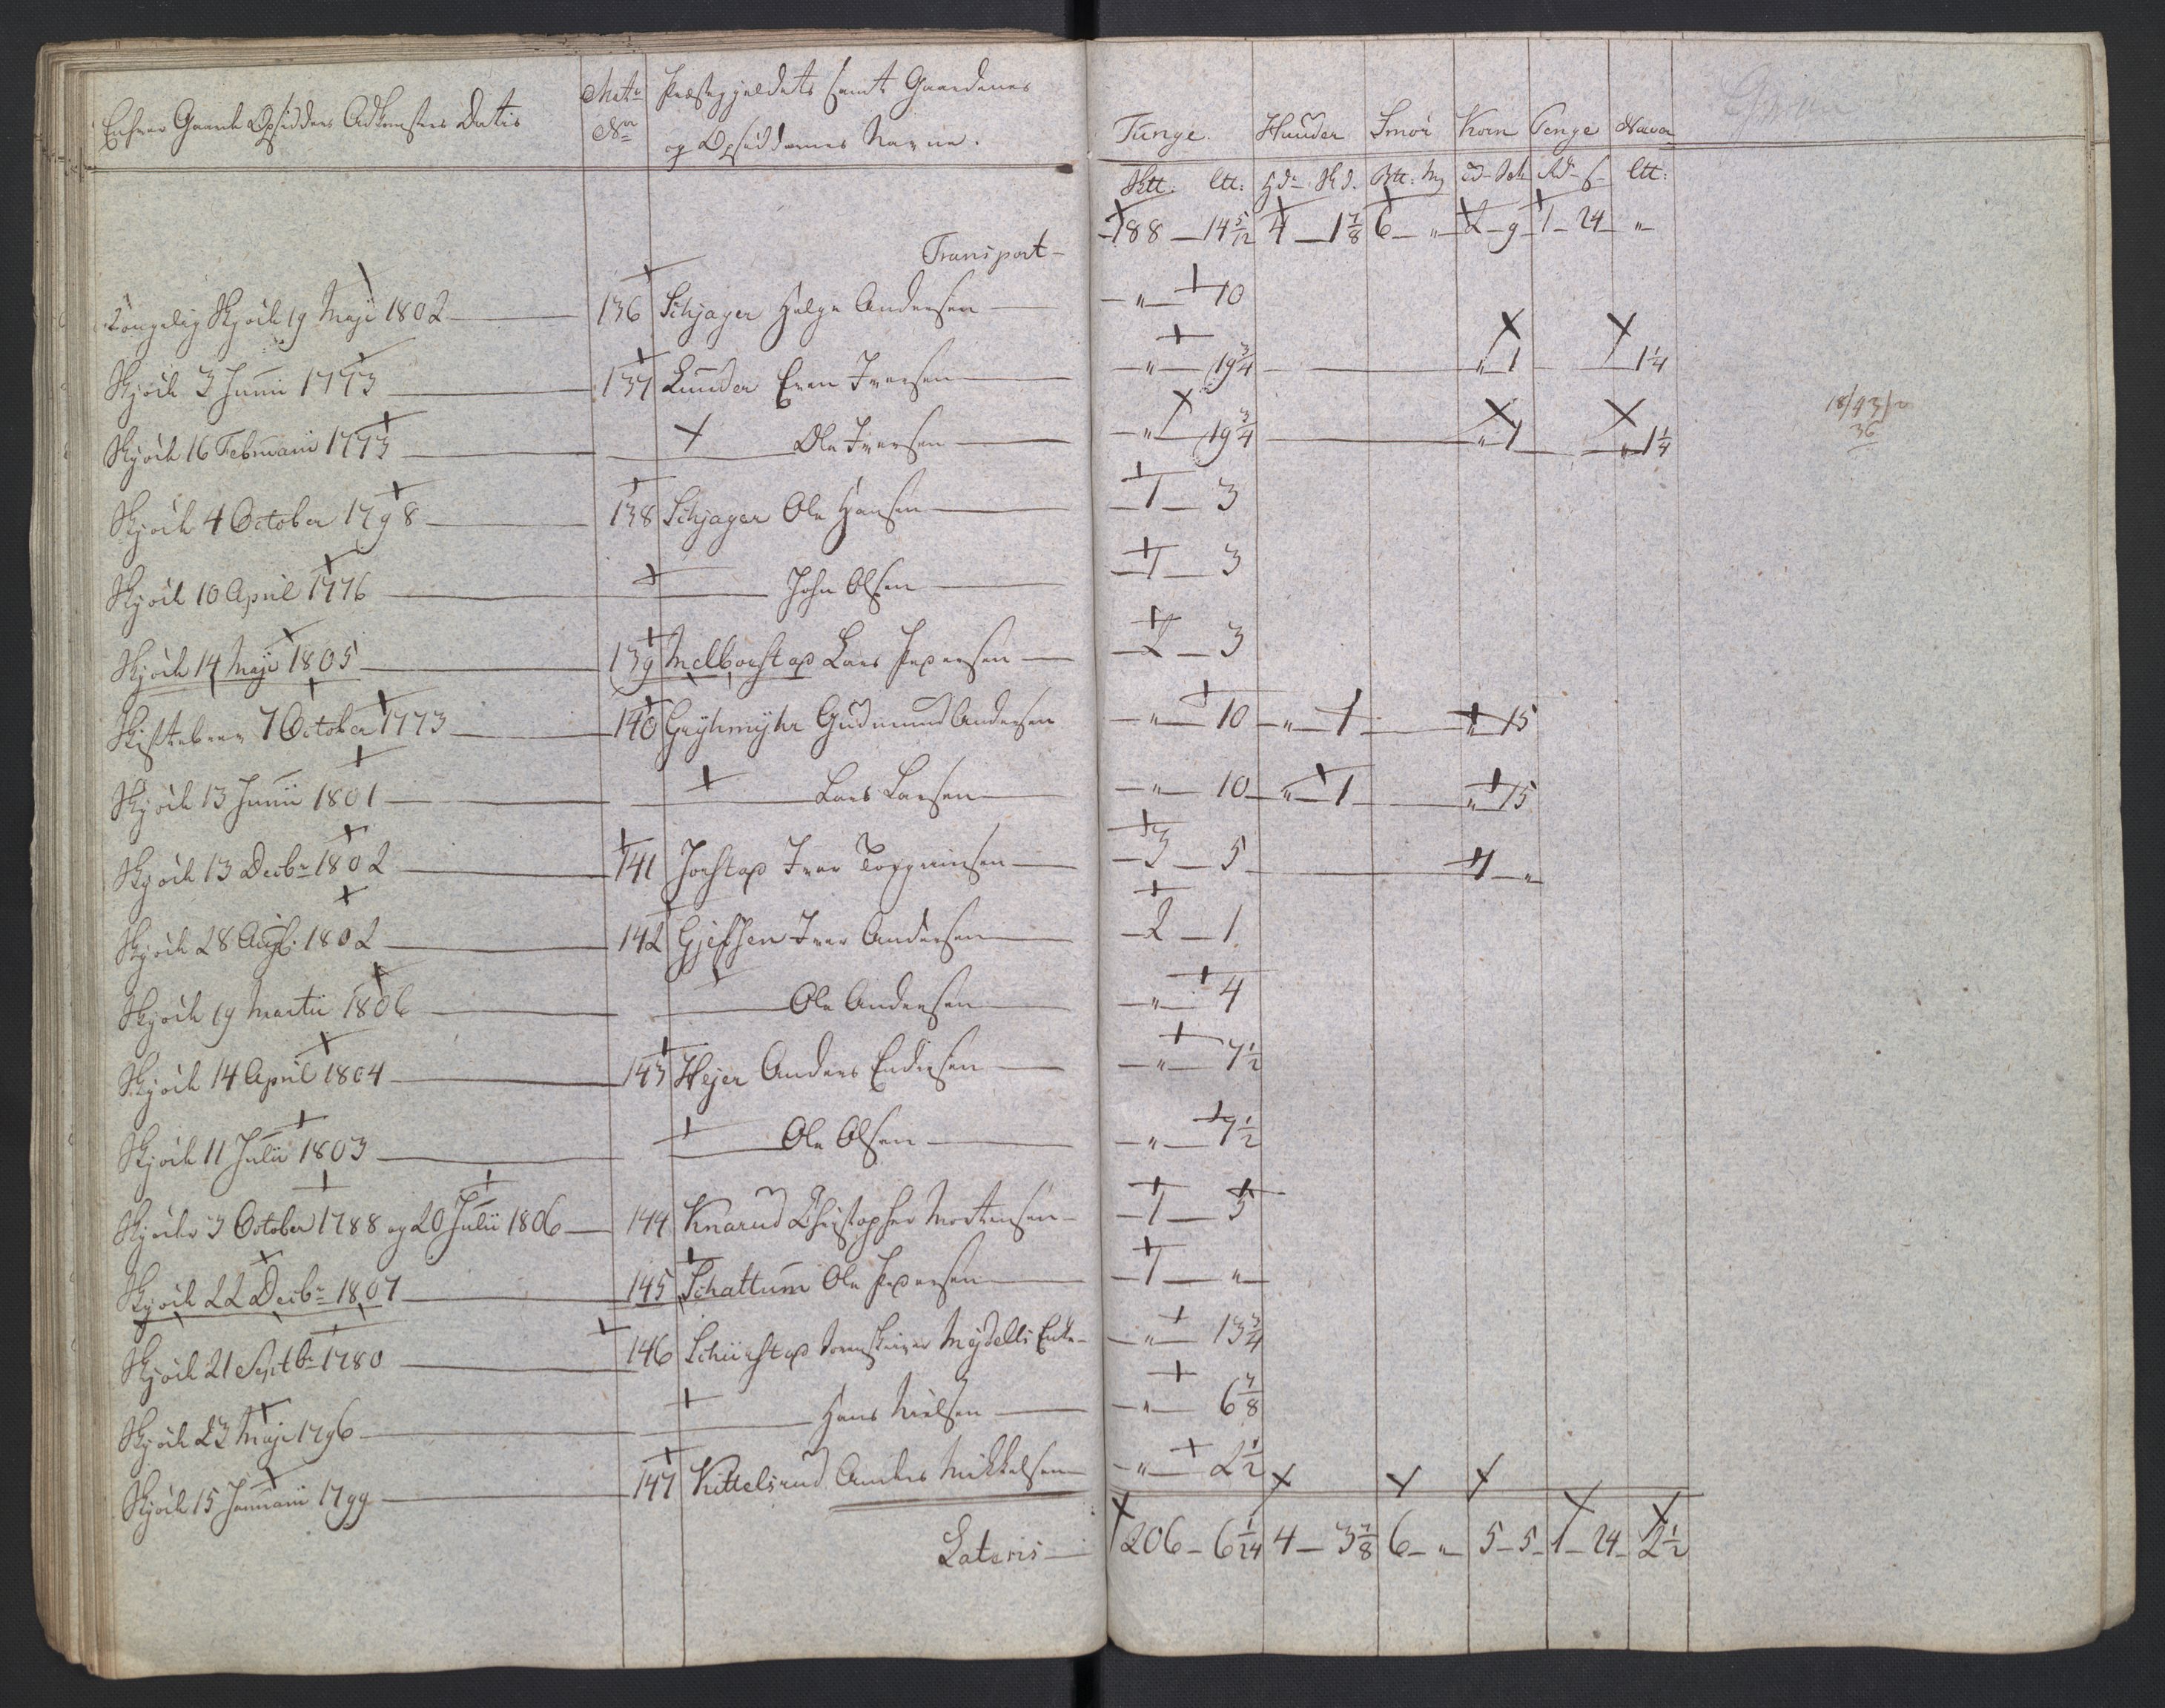 Enhver Gaards Opsidders Adkomsters Datis | Matr | Præstegjeldets samt Gaardenes | Tunge. | Huuder | Smör | Korn | Penge | Navar
Nr | og Opsiddernes Navne. | Sktt: Ltt: | Hdr Skd. | Btt: Mk | Td- Sch | Rd- s | Ltt:
Transport – | 188 – 14 5/12 | 4 – 1 7/8 | 6 – " | 2 – 9 | 1 – 24 | "
Kongelig Skjöde 19 Maji 1802 | 136 | Schjager Helge Andersen | " 10
Skjöde 3 Junii 1773 | 137 | Lunder Even Iversen | " 19 3/4 | " 1 | 1 1/4
Skjöde 16 Februarii 1773 | Ole Iversen | " 19 3/4 | " 1 | " 1 1/4
18/43/2
36
Skjöde 4 October 1798 | 138 | Schjager Ole Hansen | 1 – 3
Skjöde 10 April 1776 | John Olsen | 1 – 3
Skjöde 14 Maji 1805 | 139 | Melborstad Lars Pedersen | 2 – 3
Skiftebrev 7 October 1773 | 140 | Gryhmyhr Gudmund Andersen | " 10 | " 1 | " 15
Skjöde 13 Junii 1801 | Lars Larsen | " 10 | " 1 | " 15
Skjöde 13 Decbr 1802 | 141 | Jorstad Iver Torgrimsen | 3 – 5 | 1 "
Skjöde 28 Augt. 1802 | 142 | Gjefsen Iver Andersen | 2 – 1
Skjöde 19 Martii 1806 | Ole Andersen | " 4
Skjöde 14 April 1804 | 143 | Hejer Anders Endresen | " 7 1/2
Skjöde 11 Julii 1803 | Ole Olsen | " 7 1/2
Skjöder 3 October 1788 og 20 Julii 1806 | 144 | Knarud Christopher Mortensen | 1 – 5
Skjöde 22 Decbr 1807 | 145 | Schattum Ole Pedersen | 1 – "
Skjöde 21 Septbr 1780 | 146 | Schiirstad Sorenskriver Mydells Enke | " 13 3/4
Skjöde 23 Maji 1796 | Hans Nielsen | " 6 7/8
Skjöde 15 Januarii 1799 | 147 | Kittelsrud Anders Mikkelsen | " 2 1/2
Lateris – | 206 – 6 1/24 | 4 – 3 7/8 | 6 – " | 5 – 5 | 1 – 24 | 2 1/2